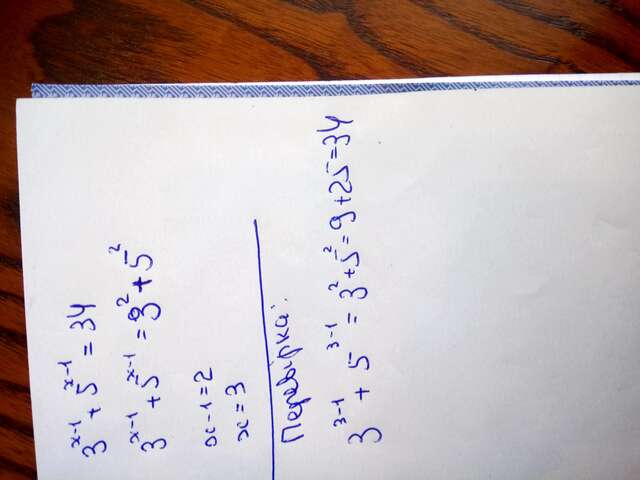 3^{x-1} + 5^{x-1} = 34
3^{x-1} + 5^{x-1} = 3^2 + 5^2
x - 1 = 2
x = 3
Перевірка:
3^{3-1} + 5^{3-1} = 3^2 + 5^2 = 9 + 25 = 34